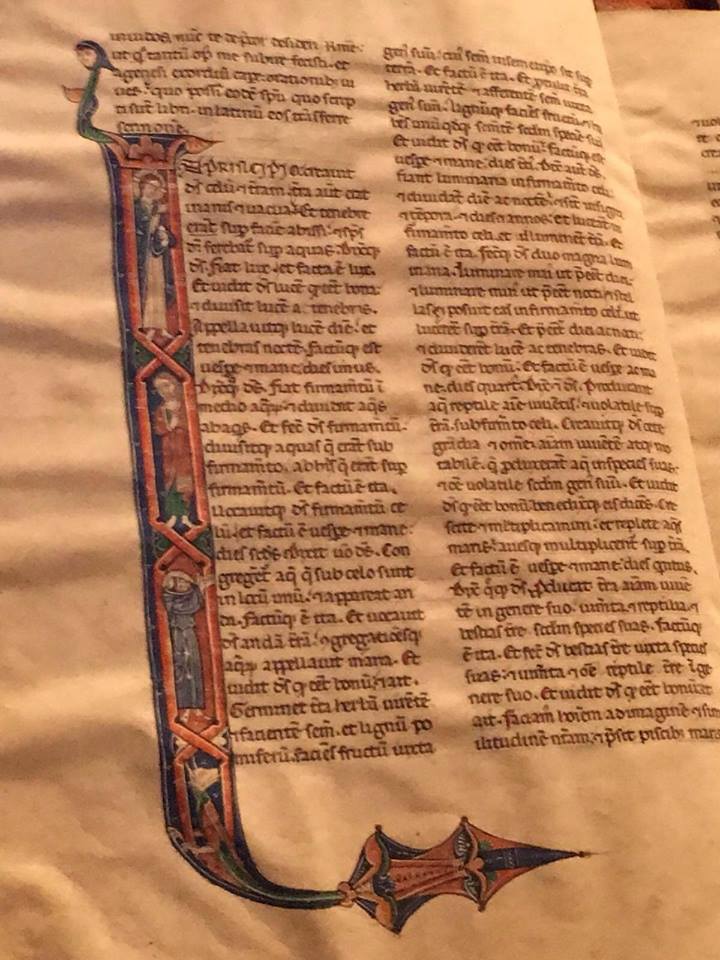 ut q̄ tantū op̄ me subire fecisti. et
a genesi exordiū cap̄e: orationib; iu
ues: quo possi eodē sp̄u quo scrip
ti sūt libri. in latinū eos trāsferre
sermonē.
PRINCIPIO creauit
d̄s celū ⁊ t̄ram. t̄ra aut̄ erat
inanis ⁊ uacua. Et tenebre
erāt sup facie abissi: ⁊ sp̄s
dn̄i ferebat̄ sup aquas. Dixitq;
d̄s. fiat lux. et facta ē lux.
Et uidit d̄s lucē q̄ eēt bona:
⁊ diuisit lucē a tenebris.
Appellauitq; lucē diē: et
tenebras noctē. factūq; est
uesp̄e ⁊ mane: dies unus.
Dixitq; d̄s. fiat firmamtū ī
medio aq̄rū: ⁊ diuidat aq̄s
ab aq̄s. Et fec̄ d̄s firmamtū:
diuisitq; aquas q̄ erāt sub
firmamto. ab his q̄ erāt sup
firmamtū. Et factū ē ita.
Uocauitq; d̄s firmamtū ce
lū: et factū ē uesp̄e ⁊ mane:
dies scd̄s. Dixit uo d̄s. Con
gregēt̄ aq̄ q̄ sub celo sunt
in locū unū: ⁊ appareat ari
da. factūq; ē ita. Et uocauit
d̄s aridā t̄rā: ⁊gregatiōesq;
aq̄rū appellauit maria. Et
uidit d̄s q̄ eēt bonū: ⁊ ait.
Germinet t̄ra herbā uirētē
⁊ facientē sem̄. et lignū po
miferū. faciēs fructū iuxta
gen̄ suū: cui sem̄ in semetip̄o sit sup
t̄rā. Et factū ē ita. Et ptulit t̄ra
herbā uirētē ⁊ afferentē sem̄ iuxta
gen̄ suū. lignūq; faciēs fructū:
bēs unūq̄dq; semtē scd̄m speciē suā
Et uidit d̄s q̄ eēt bonū: factūq; ē
uesp̄e ⁊ mane: dies t̄ci. Dix̄ aut̄ d̄s
fiant luminaria in firmamto celi.
⁊ diuidāt diē ac noctē: ⁊ sīt in signa
⁊ tēpora. ⁊ dies ⁊ annos: et luceāt in
firmamto celi. et illuminēt t̄rā. Et
factū ē ita. fecitq; d̄s duo magna lum
inaria. luminare mai ut p̄eēt diei:
⁊ luminare min ut p̄eēt nocti ⁊ stel
las: et posuit eas in firmamto celi. ut
lucerēt sup t̄rā. Et p̄eēt diei ac nocti:
⁊ diuiderēt lucē ac tenebras. Et uidit
d̄s q̄ eēt bonū: Et factū ē uesp̄e ⁊ ma
ne: dies quart. Dix̄ ⁊ d̄s. Producant
aq̄ reptile aīe uiuētis: ⁊ uolatile sup
t̄rā. sub firmamto celi. Creauitq; d̄s cete
grādia ⁊ omē aīam uiuētē atq; mo
tabilē. q̄ pduxerāt aq̄ in species suas:
⁊ oē uolatile scd̄m gen̄ suū. Et uidit
d̄s q̄ eēt bonū: benedixitq; eis dicēs. Cre
scite ⁊ multiplicamini: et replete aq̄s
maris: auesq; multiplicent̄ sup t̄rā.
Et factū ē uesp̄e ⁊ mane: dies quitus.
Dix̄ q̄q; d̄s. Producat t̄ra aīam uiuē
tē in genere suo. iumta ⁊ reptilia ⁊
bestias t̄re scd̄m species suas. factūq;
ē ita. Et fec̄ d̄s bestias t̄re iuxta species
suas: ⁊ iumta ⁊ oē reptile t̄re ī ge
nere suo. Et uidit d̄s q̄ eēt bonū: et
ait. faciam hoīem ad imaginē ⁊ sim
ilitudinē nr̄am. ⁊ p̄sit piscib; maris